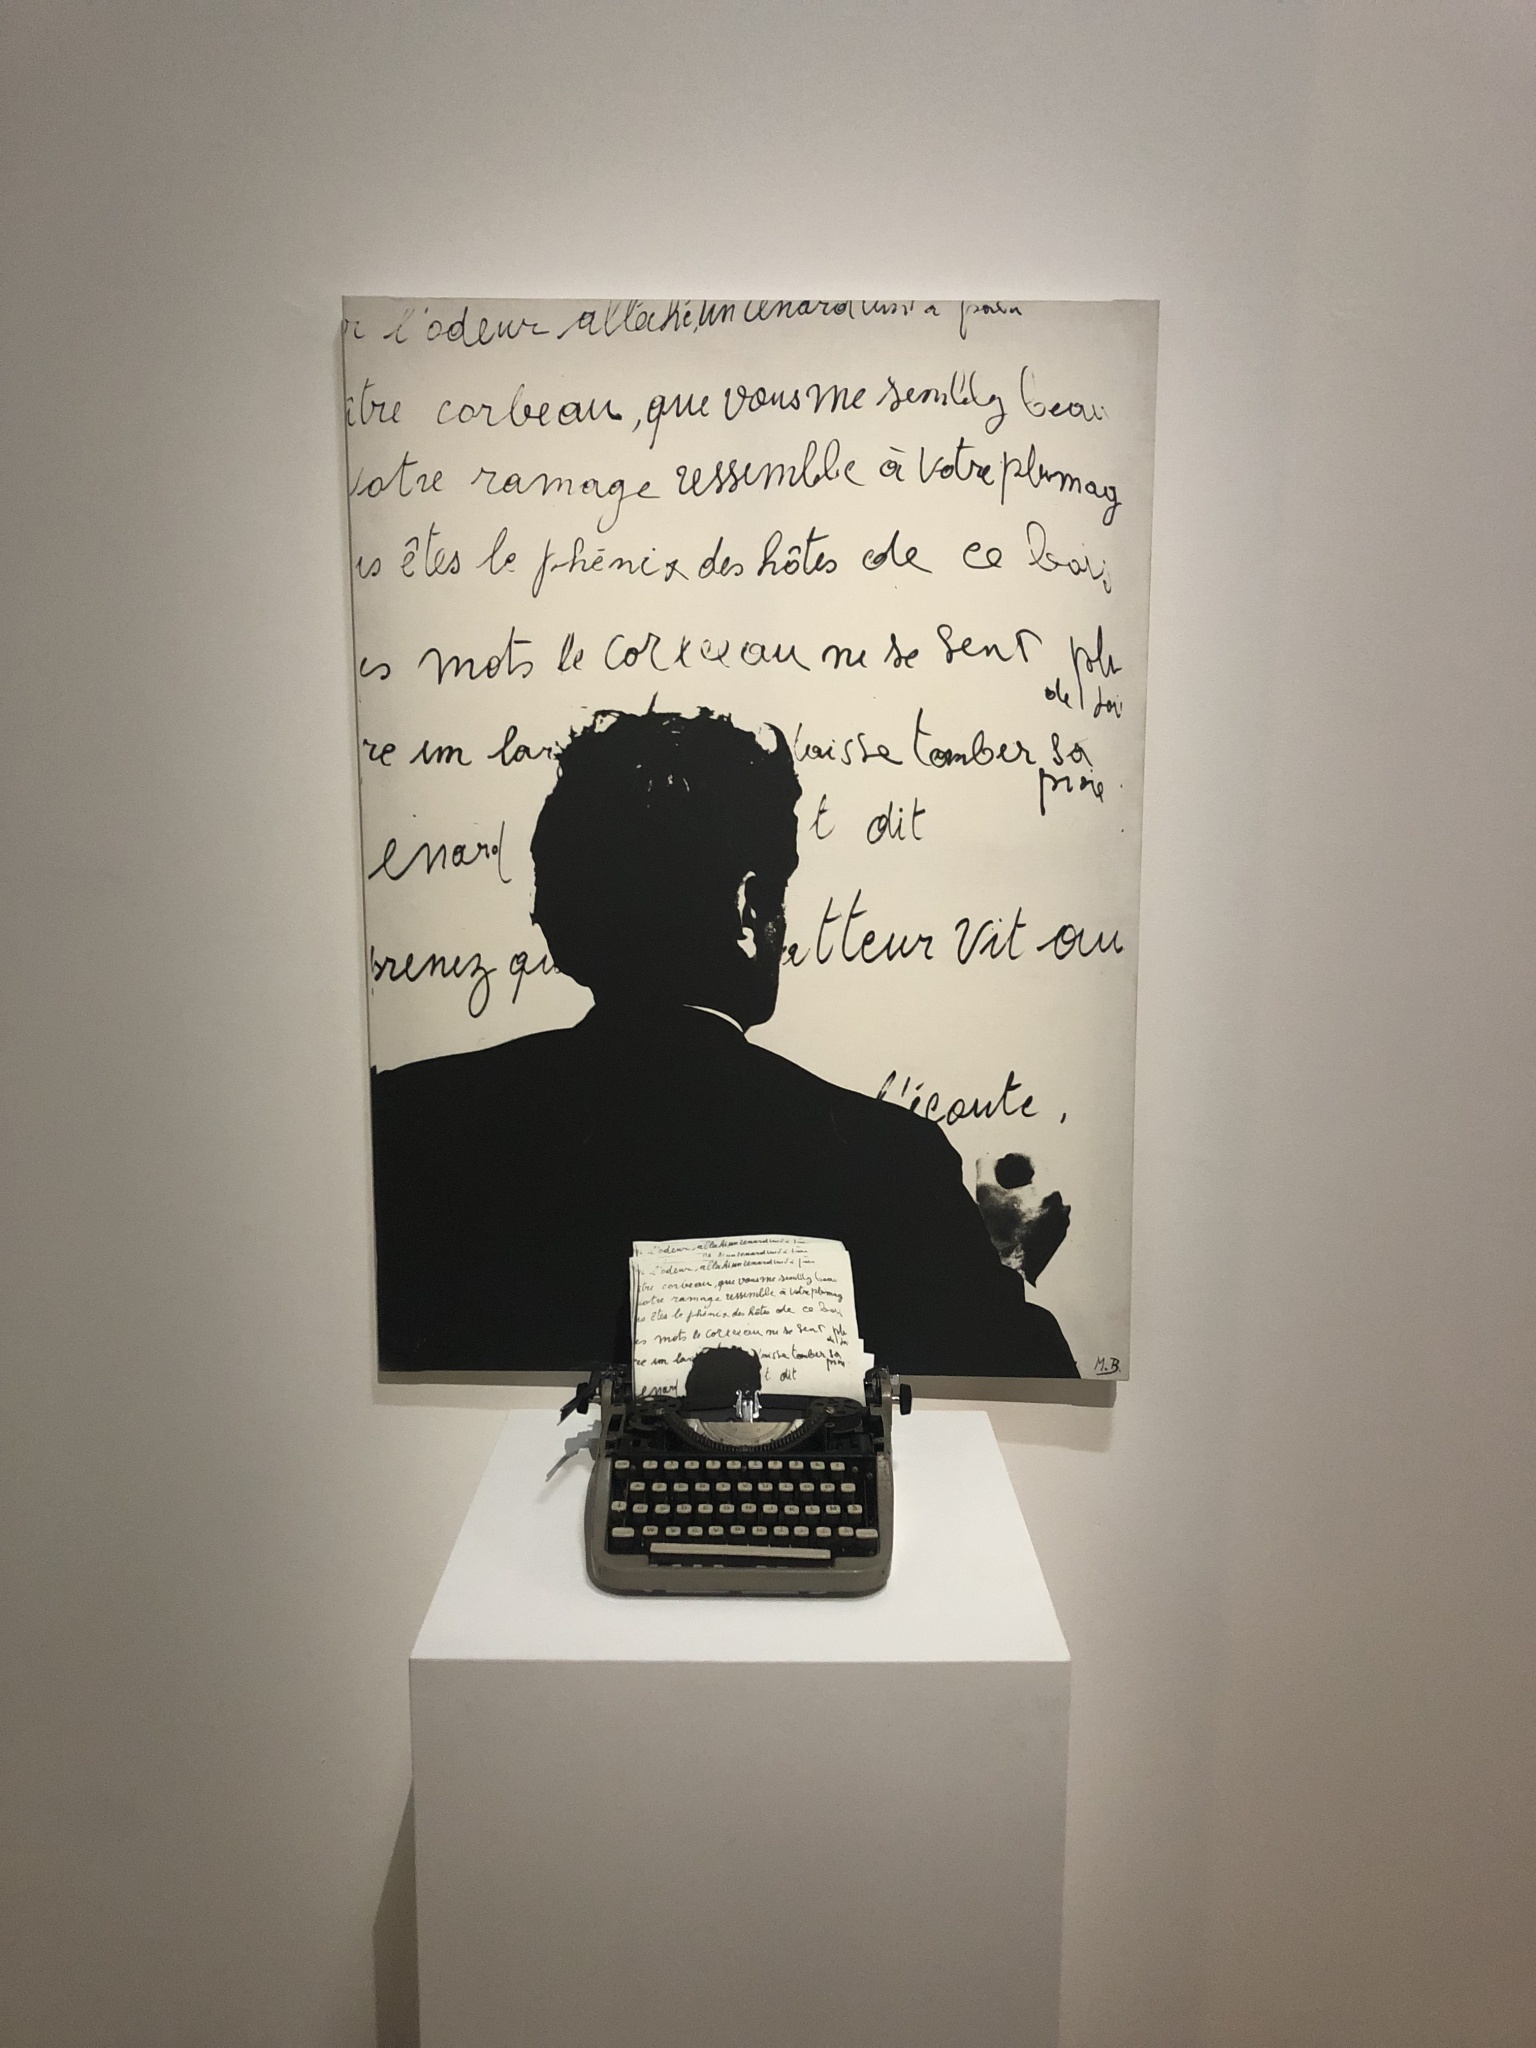 l'odeur alléché, un renard
tre corbeau, que vous me semblez beau
votre ramage ressemble à votre plumag
us êtes le phénix des hôtes de ce bois
es mots le corbeau ne se sent plu
de joi
re un lar laisse tomber sa
proie
enard t dit
prenez qu atteur vit au
l'écoute,
M.B.
l'odeur alléché un renard
l'odeur, alléché un renard
tre corbeau, que vous me semblez beau
votre ramage ressemble à votre plumag
us êtes le phénix des hôtes de ce bois
es mots le corbeau ne se sent plu
de joi
re un lar laisse tomber sa
proie
enard t dit